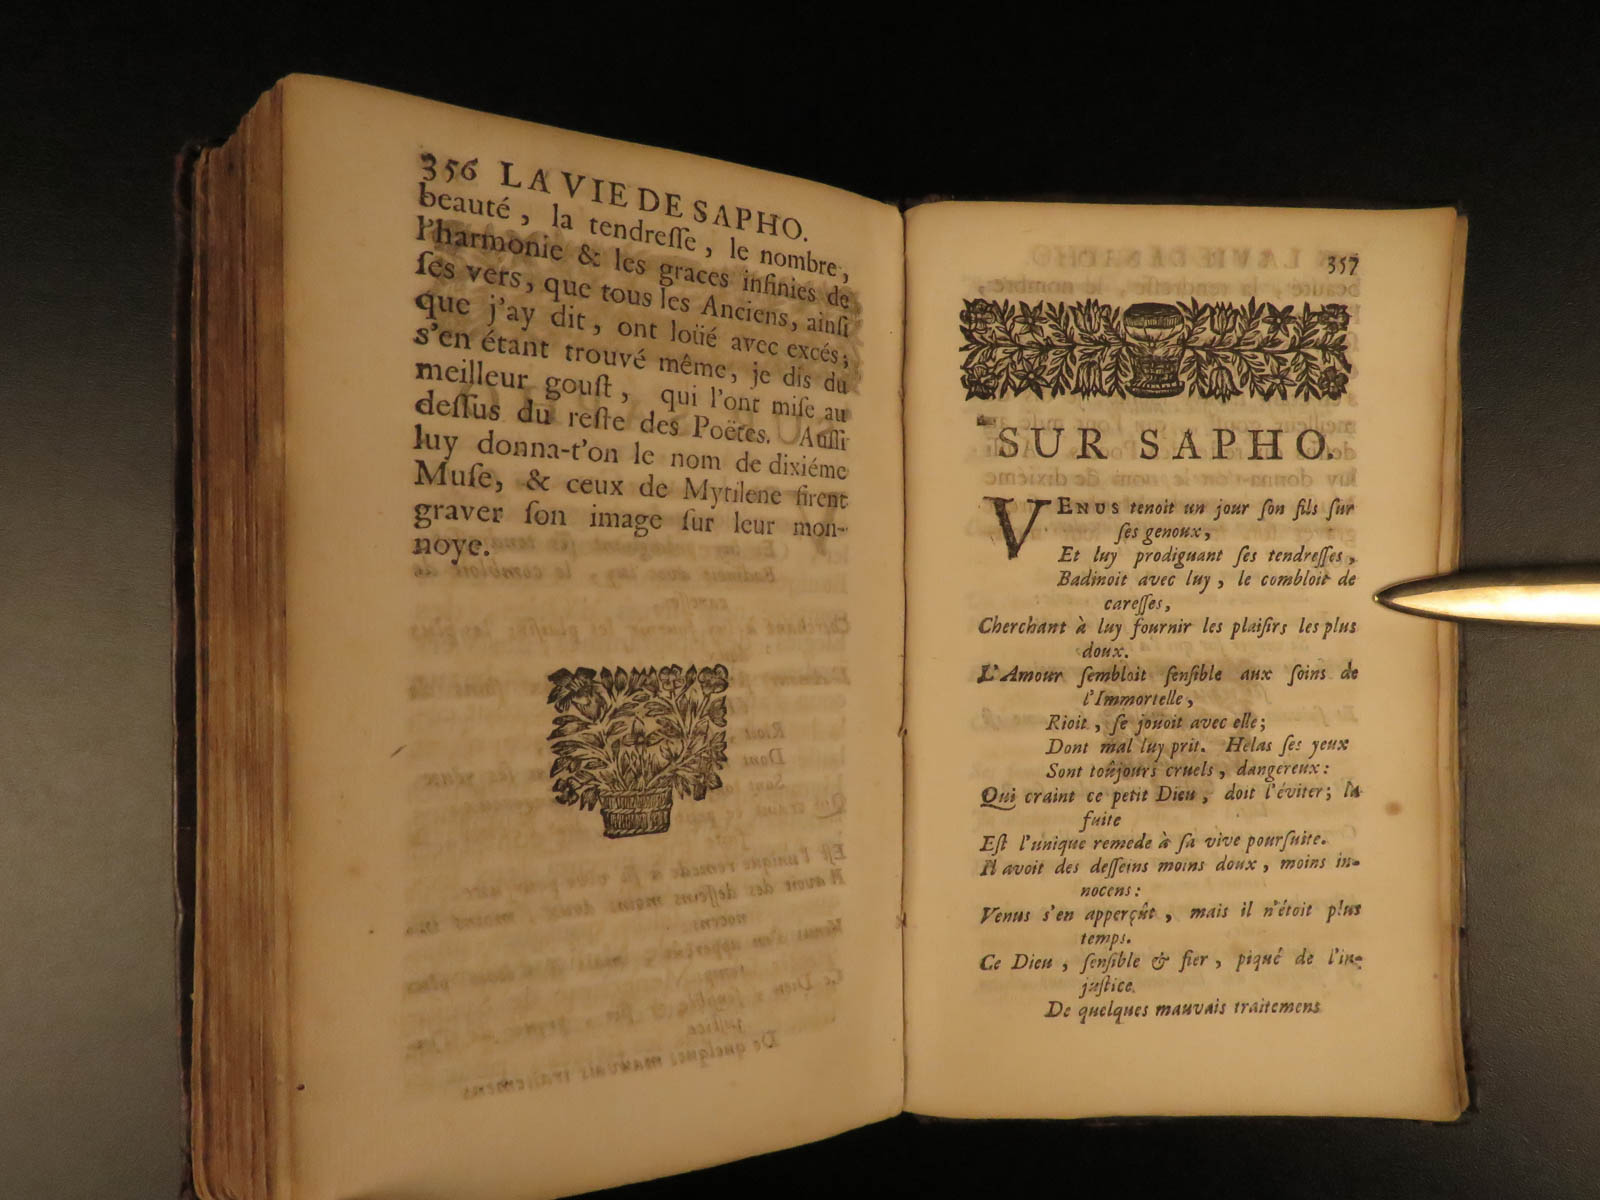 356 LA VIE DE SAPHO.
beauté, la tendreſſe, le nombre,
l'harmonie & les graces infinies de
ſes vers, que tous les Anciens, ainſi
que j'ay dit, ont loüé avec excés;
s'en étant trouvé même, je dis du
meilleur gouſt, qui l'ont miſe au
deſſus du reſte des Poëtes. Auſſi
luy donna-t'on le nom de dixiéme
Muſe, & ceux de Mytilene firent
graver ſon image ſur leur mon-
noye.
357
SUR SAPHO.
VENUS tenoit un jour ſon fils ſur
ſes genoux,
Et luy prodiguant ſes tendreſſes,
Badinoit avec luy, le combloit de
careſſes,
Cherchant à luy fournir les plaiſirs les plus
doux.
L'Amour ſembloit ſenſible aux ſoins de
l'Immortelle,
Rioit, ſe jouoit avec elle;
Dont mal luy prit. Helas ſes yeux
Sont toûjours cruels, dangereux:
Qui craint ce petit Dieu, doit l'éviter; la
fuite
Eſt l'unique remede à ſa vive pourſuite.
Il avoit des deſſeins moins doux, moins in-
nocens:
Venus s'en apperçût, mais il n'étoit plus
temps.
Ce Dieu, ſenſible & fier, piqué de l'in-
juſtice
De quelques mauvais traitemens